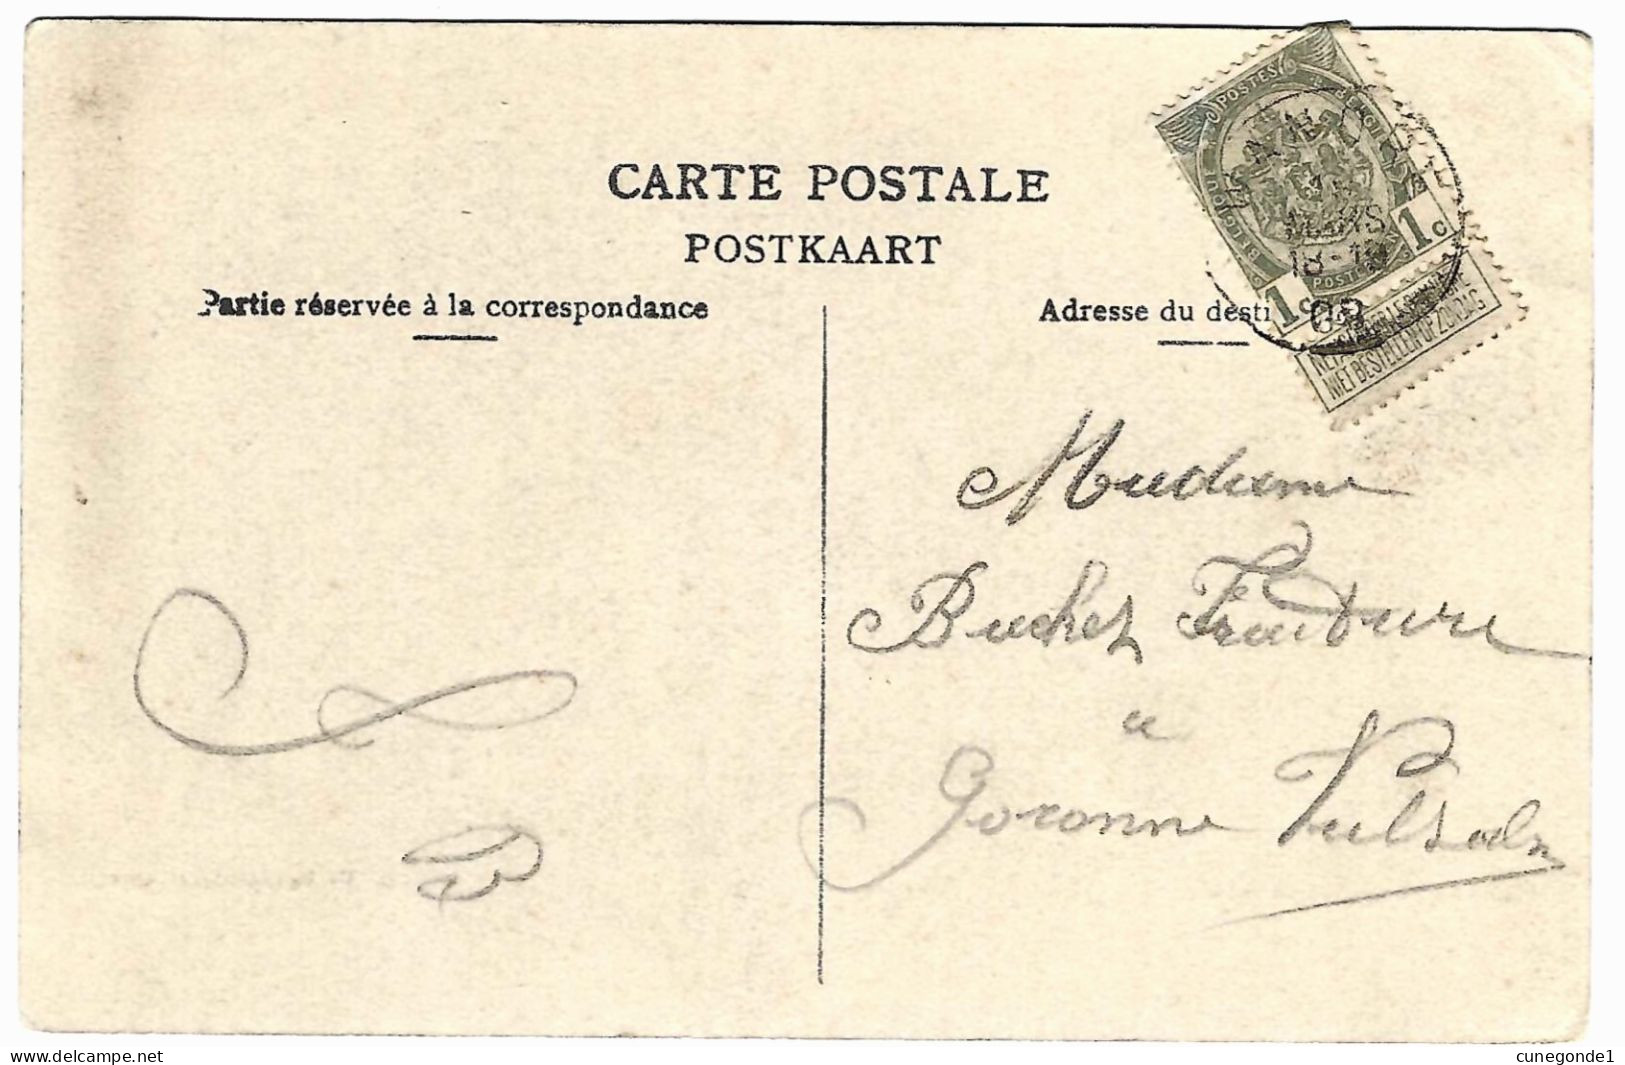 CARTE POSTALE
POSTKAART
Partie réservée à la correspondance
Adresse du desti
POSTES BELGIQUE
1c 1c
MARS
18-19
08
NIET BESTELLEN OP ZONDAG
Madame
Buchet
à
Goronne Vielsalm
www.delcampe.net
cunegonde1